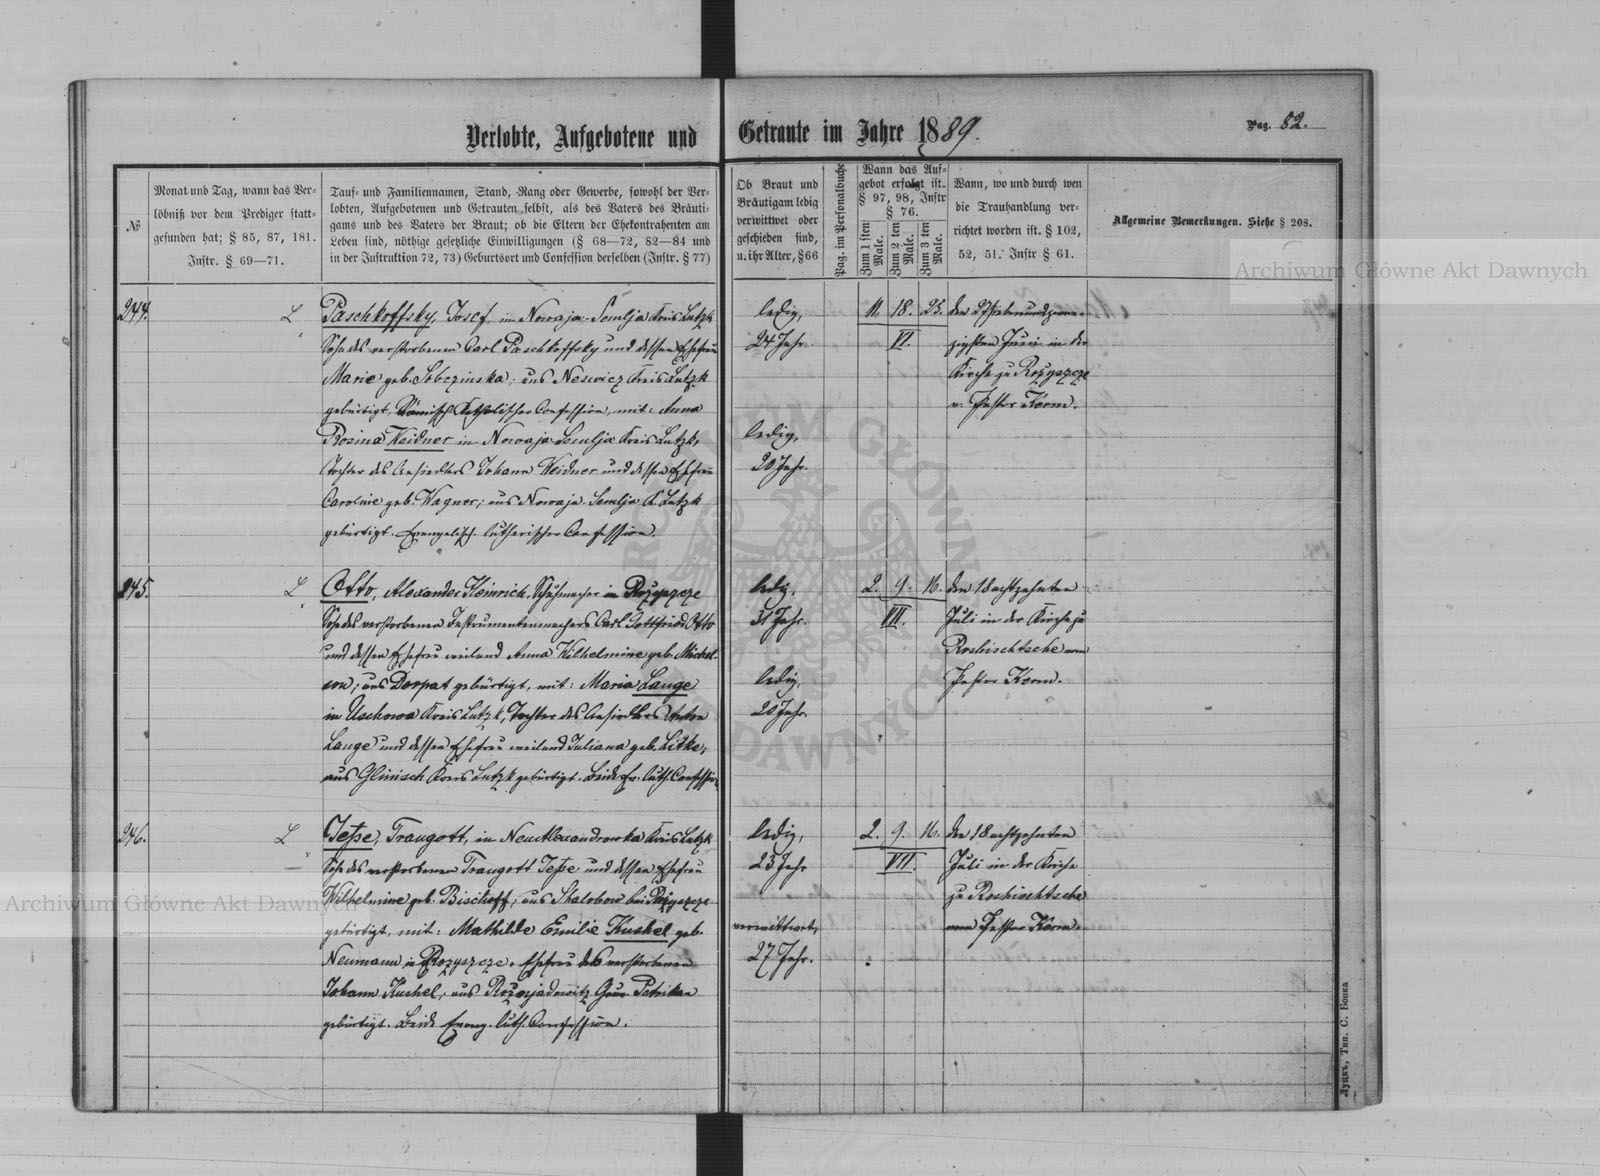 Verlobte, Aufgebotene und Getraute im Jahre 1889.
Pag. 82.
№
Monat und Tag, wann das Ver-
löbniß vor dem Prediger statt-
gefunden hat; § 85, 87, 181.
Instr. § 69—71.
Tauf- und Familiennamen, Stand, Rang oder Gewerbe, sowohl der Ver-
lobten, Aufgebotenen und Getrauten selbst, als des Vaters des Bräuti-
gams und des Vaters der Braut; ob die Eltern der Ehekontrahenten am
Leben sind, nöthige gesetzliche Einwilligungen (§ 68—72, 82—84 und
in der Instruktion 72, 73) Geburtsort und Confession derselben (Instr. § 77)
Ob Braut und
Bräutigam ledig
verwittwet oder
geschieden sind,
u. ihr Alter, §66
Pag. im Personalbuche
Wann das Auf-
gebot erfolgt ist.
§ 97, 98, Instr
§ 76.
Zum 1 sten Male.
Zum 2 ten Male.
Zum 3 ten Male.
Wann, wo und durch wen
die Trauhandlung ver-
richtet worden ist. § 102,
52, 51. Instr § 61.
Allgemeine Bemerkungen. Siehe § 208.
244.
L
Paschkoffsky, Josef, in Nowaja-Semlja Kreis Lutzk
Sohn des verstorbenen Carl Paschkoffsky und dessen Ehefrau
Marie geb. Sobczinska; aus Neswicz Kreis Lutzk
gebürtigt, Römisch Katholischer Confession, mit: Anna
Rosina Weidner in Nowaja-Semlja Kreis Lutzk,
Tochter des Ansiedlers Johann Weidner und dessen Ehefrau
Caroline geb. Wagner; aus Nowaja-Semlja K. Lutzk
gebürtigt. Evangelisch-lutherischer Confession.
ledig,
24 Jahr.
ledig,
20 Jahr.
11. 18. 25.
VI.
den 27 siebenundzwan-
zigsten Juni in der
Kirche zu Rożyszcze
v. Pastor Kerm.
245.
L
Otto, Alexander Heinrich, Schuhmacher in Rożyszcze
Sohn des verstorbenen Instrumentenmachers Carl Gottfried Otto
und dessen Ehefrau weiland Anna Wilhelmine geb. Michel-
son; aus Dorpat gebürtigt, mit: Maria Lange
in Uschowa Kreis Lutzk, Tochter des Ansiedlers Anton
Lange und dessen Ehefrau weiland Juliana geb. Litke;
aus Glinisch Kreis Lutzk gebürtigt. Beide Ev. luth. Confession
ledig,
31 Jahr.
ledig,
20 Jahr.
2. 9. 16.
VII.
den 18 achtzehnten
Juli in der Kirche zu
Roshischtsche vom
Pastor Kerm.
246.
L
Jeße, Traugott, in Neu Alexandrowka Kreis Lutzk
Sohn des verstorbenen Traugott Jeße und dessen Ehefrau
Wilhelmine geb. Bischoff; aus Shalobow bei Rożyszcze
gebürtigt, mit: Mathilde Emilie Kuschel geb.
Neumann in Rozyszcze. Ehefrau des verstorbenen
Johann Kuschel; aus Gouv. Petrikau
gebürtigt. Beide Evang. luth. Confession.
ledig,
23 Jahr
verwittwet,
27 Jahr.
2. 9. 16.
VII.
den 18 achtzehnten
Juli in der Kirche
zu Roshischtsche
vom Pastor Kerm.
Луцкъ, Тип. С. Бонка
Archiwum Główne Akt Dawnych
Archiwum Główne Akt Dawnych